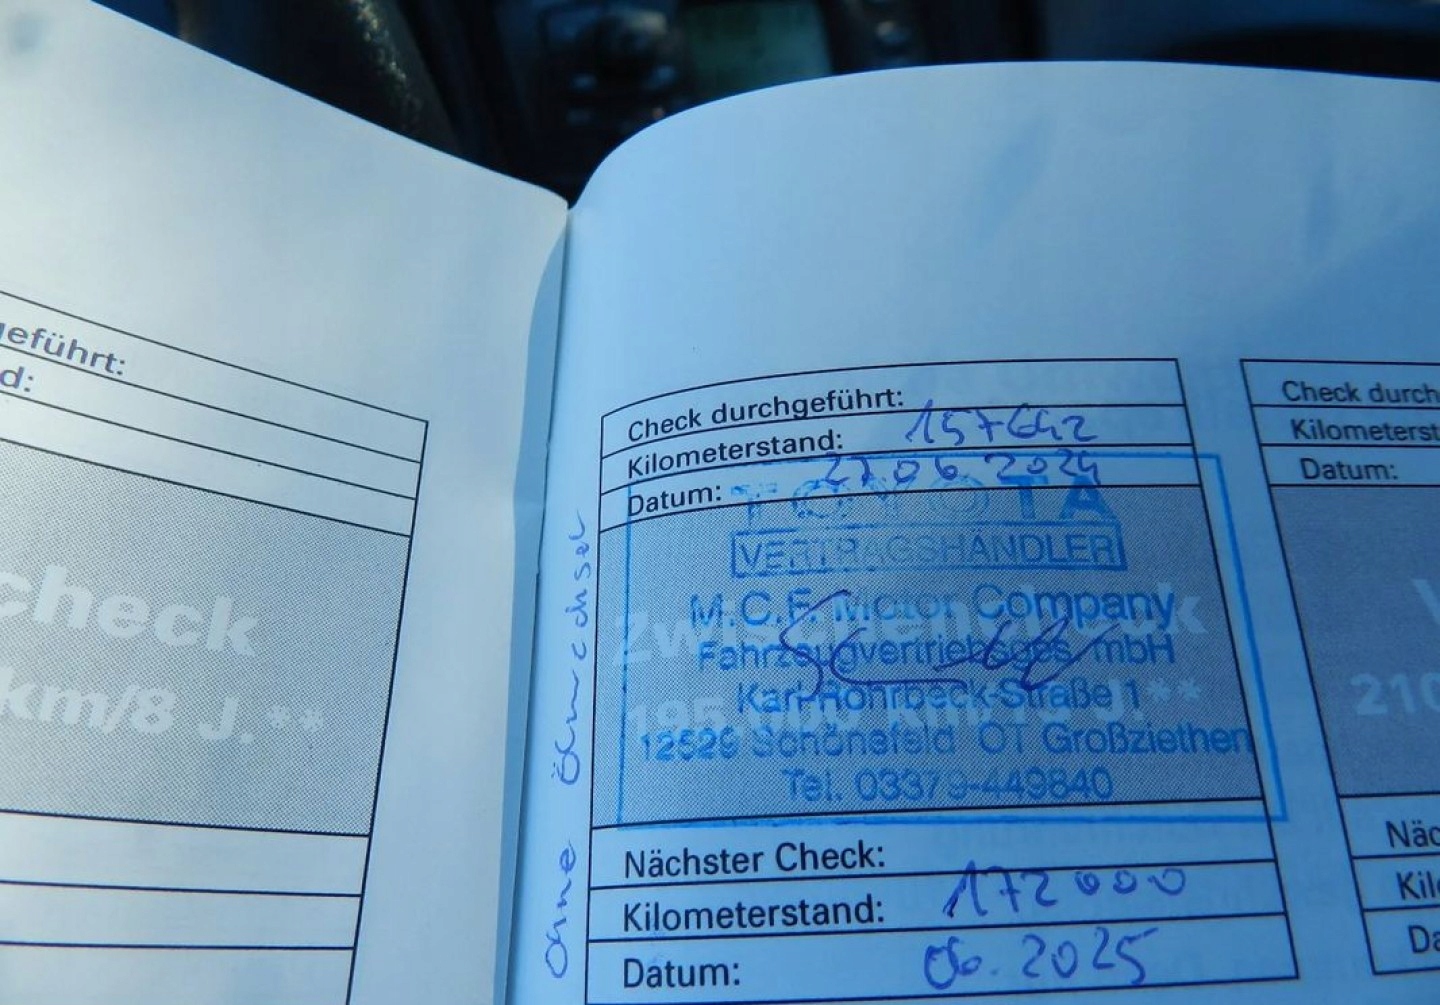 geführt:
d:
check
km/8 J.**
Check durchgeführt:
Kilometerstand: 157642
Datum: 27.06.2024
TOYOTA
VERTRAGSHÄNDLER
M.C.F. Motor Company
Zwischencheck
Fahrzeugvertriebsges mbH
Karl-Rohrbeck-Straße 1
195.000 km/13 J.**
12529 Schönefeld OT Großziethen
Tel. 03379-449840
Nächster Check:
Kilometerstand: 172000
Datum: 06.2025
ohne Ölwechsel
Check durch
Kilometerst
Datum:
210
Näc
Kil
Da